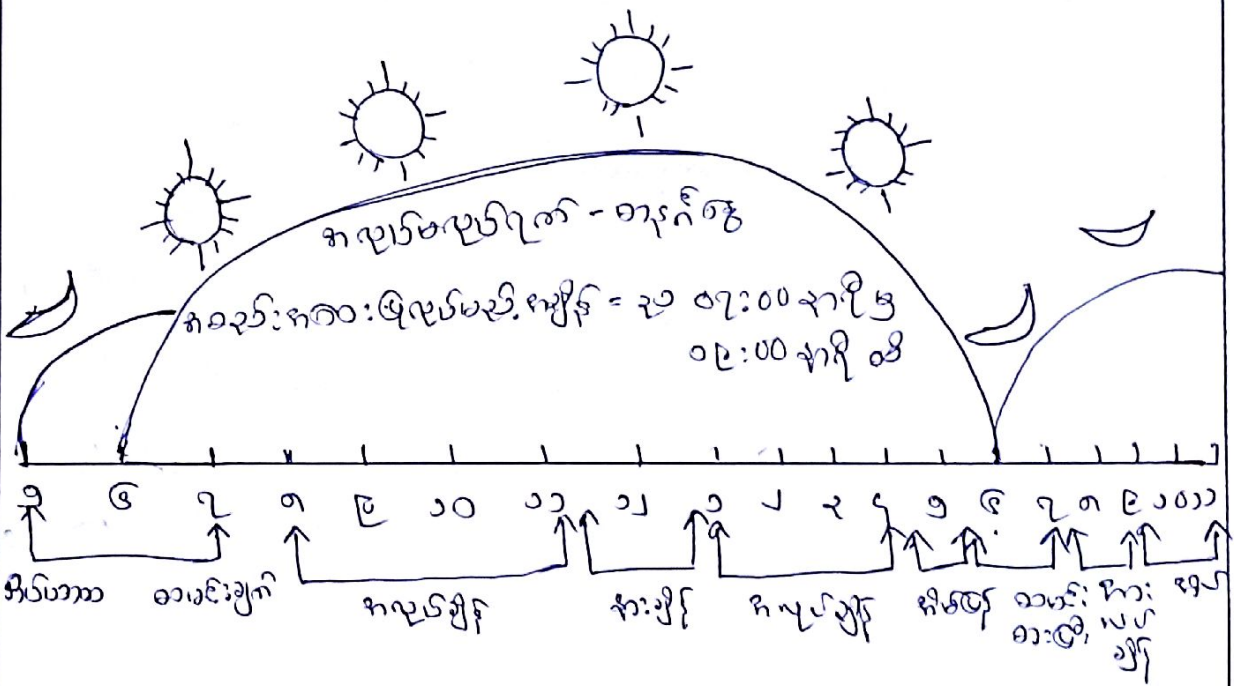 အလုပ်မလုပ်ရက် - တနင်္ဂနွေ
အစည်းအဝေးပြုလုပ်မည့်အချိန် = ည ၀၇:၀၀ နာရီမှ
၀၉:၀၀ နာရီ ထိ
၅ ၆ ၇ ၈ ၉ ၁၀ ၁၁ ၁၂ ၁ ၂ ၃ ၄ ၅ ၆ ၇ ၈ ၉ ၁၀ ၁၁
အိပ်ယာထ ထမင်းချက် အလုပ်ချိန် နားချိန် အလုပ်ချိန် အိမ်ပြန် ထမင်း အား အိပ်
စားပြီး လပ်
ချိန်